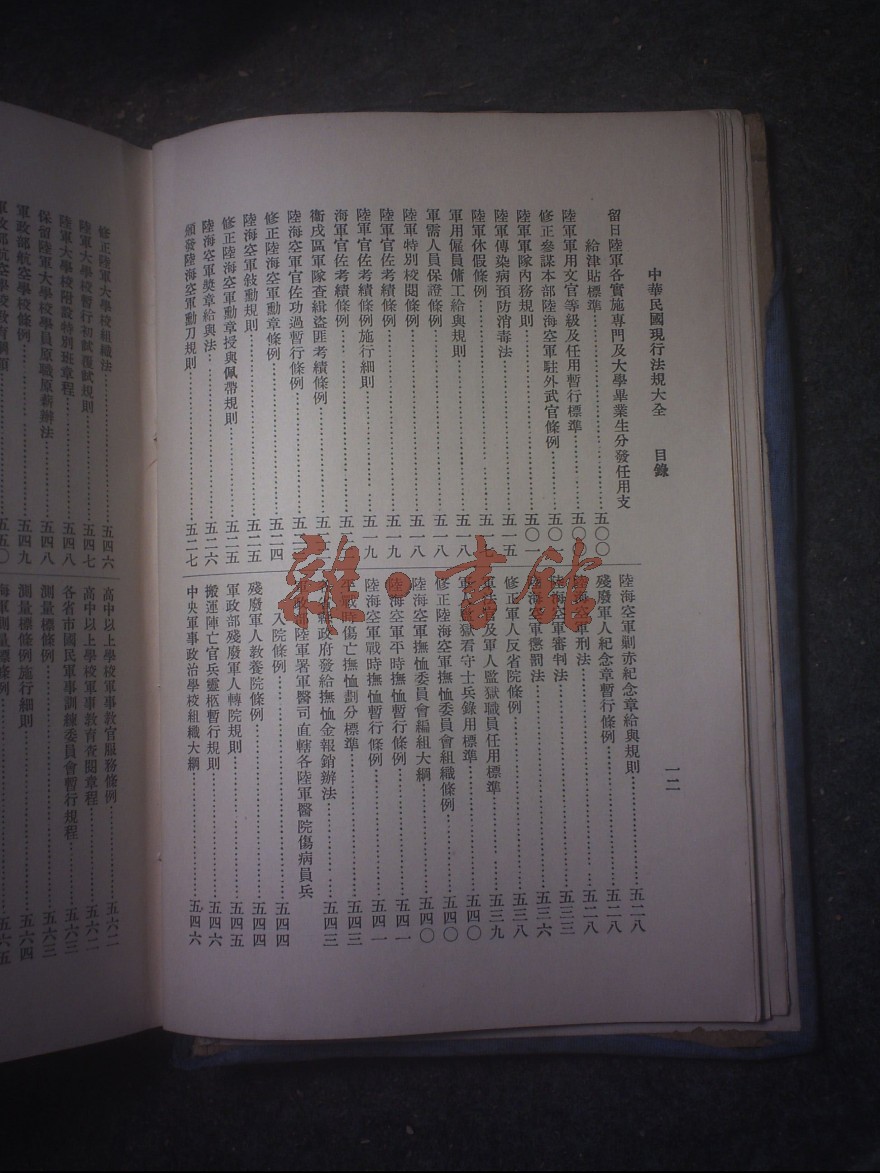 中華民國現行法規大全 目錄
一二
留日陸軍各實施專門及大學畢業生分發任用支
給津貼標準……五〇〇
陸軍軍用文官等級及任用暫行標準……五〇〇
修正參謀本部陸海空軍駐外武官條例……五〇
陸軍軍隊內務規則……五〇一
陸軍傳染病預防消毒法……五一五
陸軍休假條例……五一七
軍用僱員傭工給與規則……五一八
軍需人員保證條例……五一八
陸軍特別校閱條例……五一八
陸軍官佐考績條例……五一九
陸軍官佐考績條例施行細則……五一九
海軍官佐考績條例……五二
衞戍區軍隊查緝盜匪考績條例……五二二
陸海空軍官佐功過暫行條例……五二
修正陸海空軍勳章條例……五二四
陸海空軍敍勳規則……五二五
修正陸海空軍勳章授與佩帶規則……五二五
陸海空軍獎章給與法……五二六
頒發陸海空軍勳刀規則……五二七
陸海空軍剿赤紀念章給與規則……五二八
殘廢軍人紀念章暫行條例……五二八
陸海空軍刑法……五二八
陸海空軍審判法……五三三
陸海空軍懲罰法……五三六
修正軍人反省院條例……五三八
軍法官及軍人監獄職員任用標準……五三九
軍人監獄看守士兵錄用標準……五四〇
修正陸海空軍撫恤委員會組織條例……五四〇
陸海空軍撫恤委員會編組大綱……五四〇
陸海空軍平時撫恤暫行條例……五四一
陸海空軍戰時撫恤暫行條例……五四一
平戰時傷亡撫恤劃分標準……五四三
各省縣政府發給撫恤金報銷辦法……五四三
軍政部陸軍署軍醫司直轄各陸軍醫院傷病員兵
入院條例……五四四
殘廢軍人教養院條例……五四四
軍政部殘廢軍人轉院規則……五四五
搬運陣亡官兵靈柩暫行規則……五四六
中央軍事政治學校組織大綱……五四六
修正陸軍大學校組織法……五四六
陸軍大學校暫行初試覆試規則……五四七
陸軍大學校附設特別班章程……五四八
保留陸軍大學校學員原職原薪辦法……五四九
軍政部航空學校條例……五四九
軍政部航空學校教育綱領……五五〇
高中以上學校軍事教官服務條例……五六二
高中以上學校軍事教育查閱章程……五六二
各省市國民軍事訓練委員會暫行規程……五六三
測量標條例……五六三
測量標條例施行細則……五六四
海軍測量標條例……五六五
雜·書館